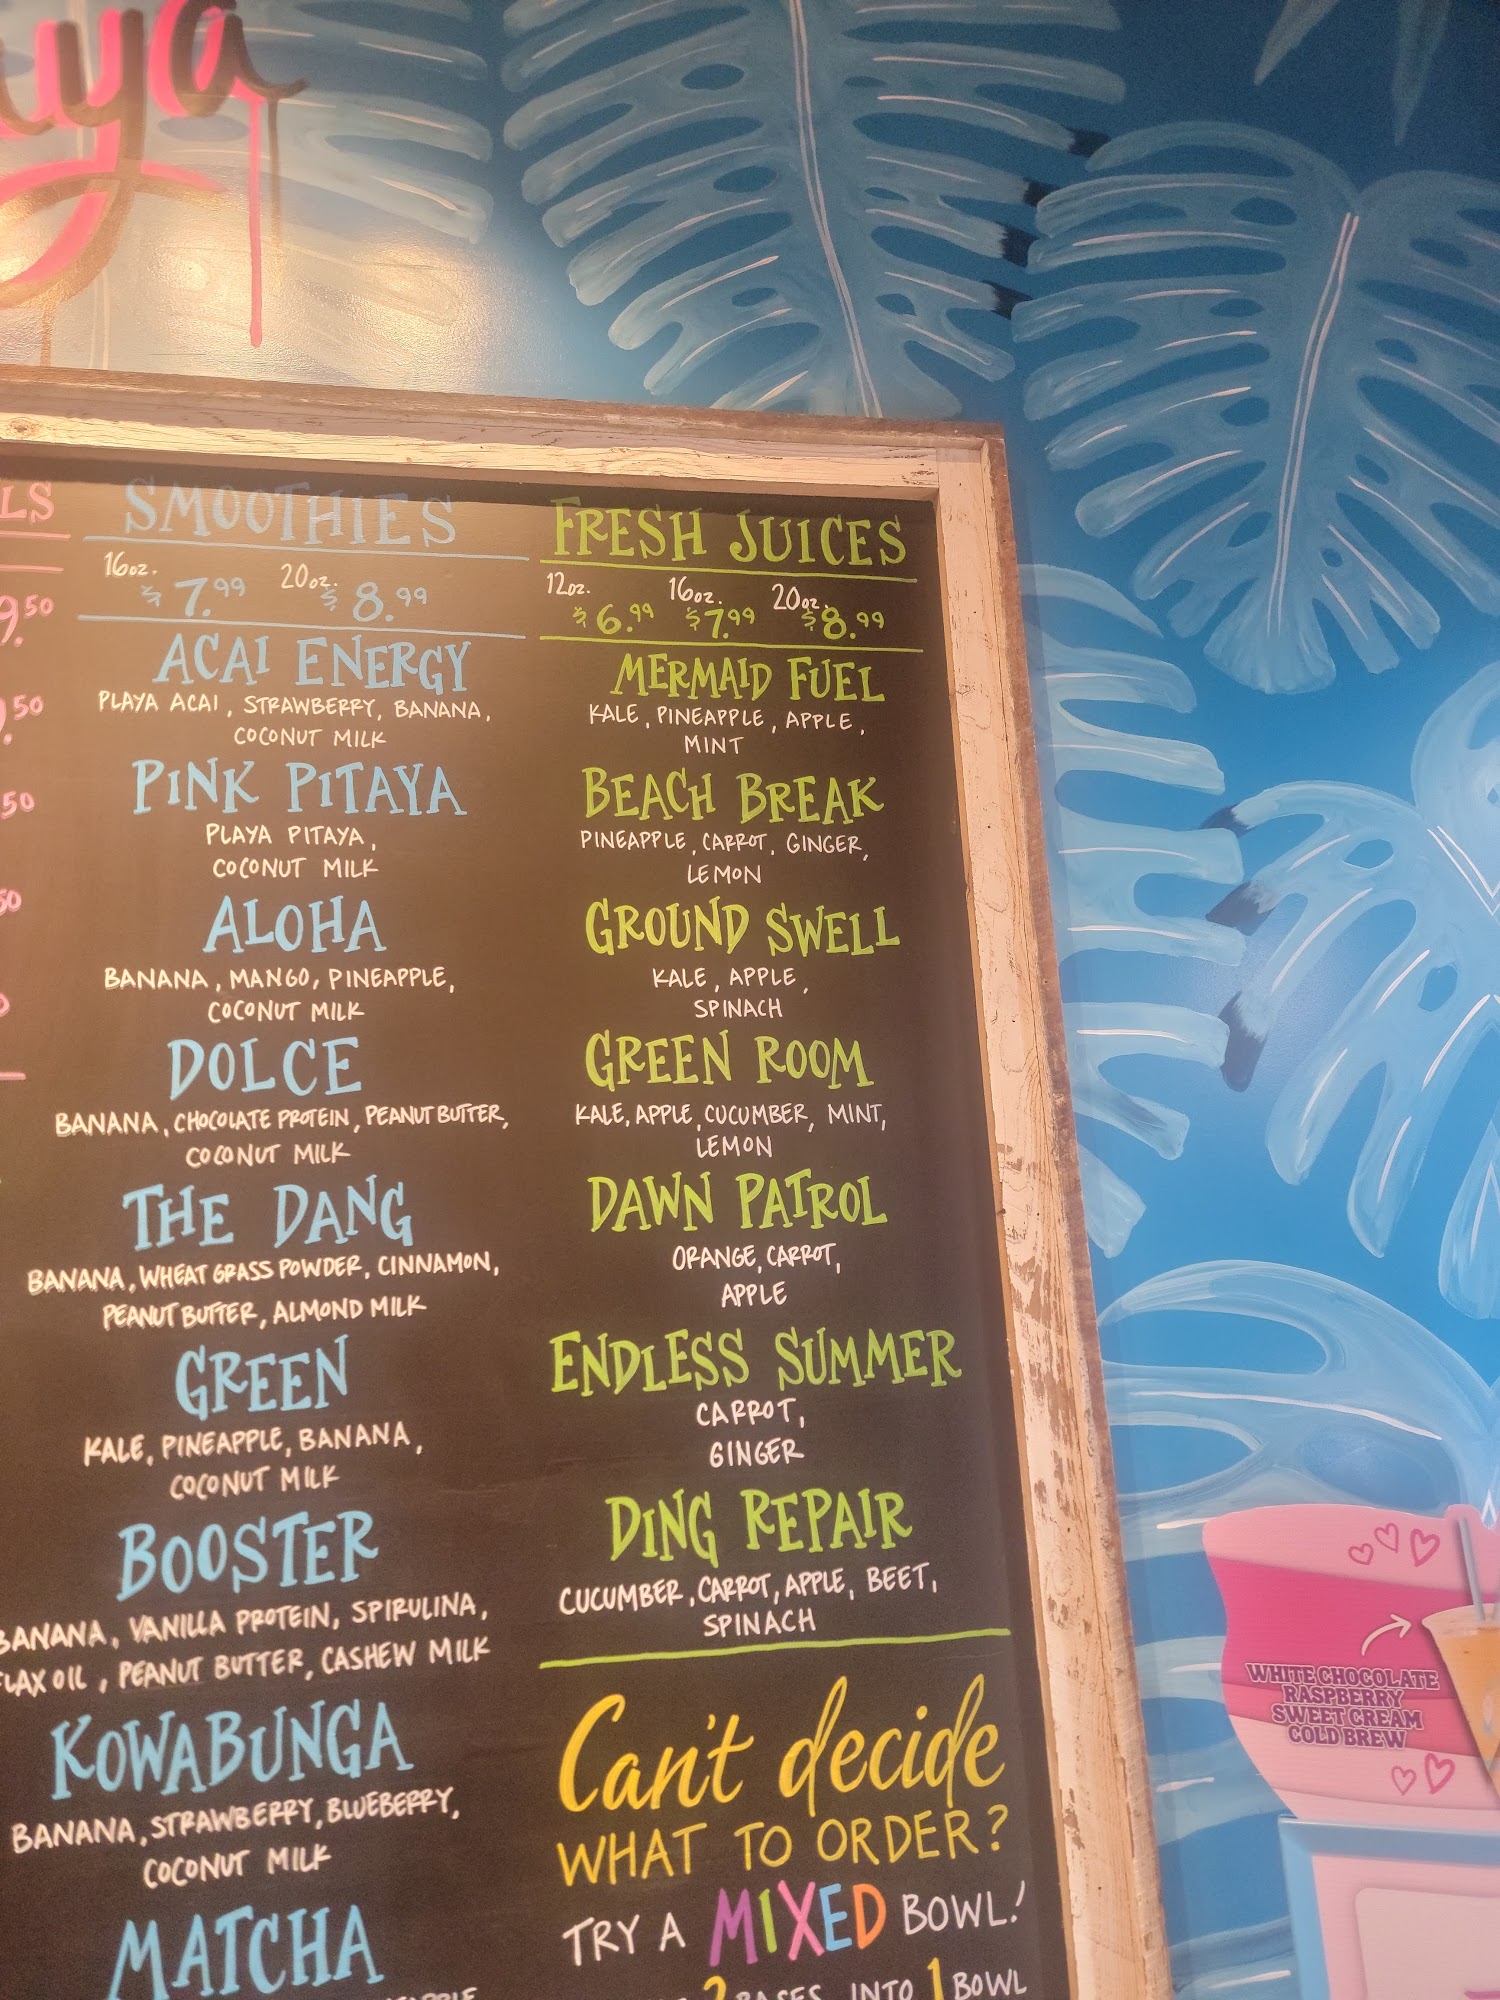 aya
LS
9.50
.50
50
50
SMOOTHIES
16oz. $7.99 20oz. $8.99
ACAI ENERGY
PLAYA ACAI, STRAWBERRY, BANANA,
COCONUT MILK
PINK PITAYA
PLAYA PITAYA,
COCONUT MILK
ALOHA
BANANA, MANGO, PINEAPPLE,
COCONUT MILK
DOLCE
BANANA, CHOCOLATE PROTEIN, PEANUT BUTTER,
COCONUT MILK
THE DANG
BANANA, WHEAT GRASS POWDER, CINNAMON,
PEANUT BUTTER, ALMOND MILK
GREEN
KALE, PINEAPPLE, BANANA,
COCONUT MILK
BOOSTER
BANANA, VANILLA PROTEIN, SPIRULINA,
FLAX OIL, PEANUT BUTTER, CASHEW MILK
KOWABUNGA
BANANA, STRAWBERRY, BLUEBERRY,
COCONUT MILK
MATCHA
FRESH JUICES
12oz. $6.99 16oz. $7.99 20oz. $8.99
MERMAID FUEL
KALE, PINEAPPLE, APPLE,
MINT
BEACH BREAK
PINEAPPLE, CARROT, GINGER,
LEMON
GROUND SWELL
KALE, APPLE,
SPINACH
GREEN ROOM
KALE, APPLE, CUCUMBER, MINT,
LEMON
DAWN PATROL
ORANGE, CARROT,
APPLE
ENDLESS SUMMER
CARROT,
GINGER
DING REPAIR
CUCUMBER, CARROT, APPLE, BEET,
SPINACH
Can't decide
WHAT TO ORDER?
TRY A MIXED BOWL!
2 BASES INTO 1 BOWL
WHITE CHOCOLATE
RASPBERRY
SWEET CREAM
COLD BREW